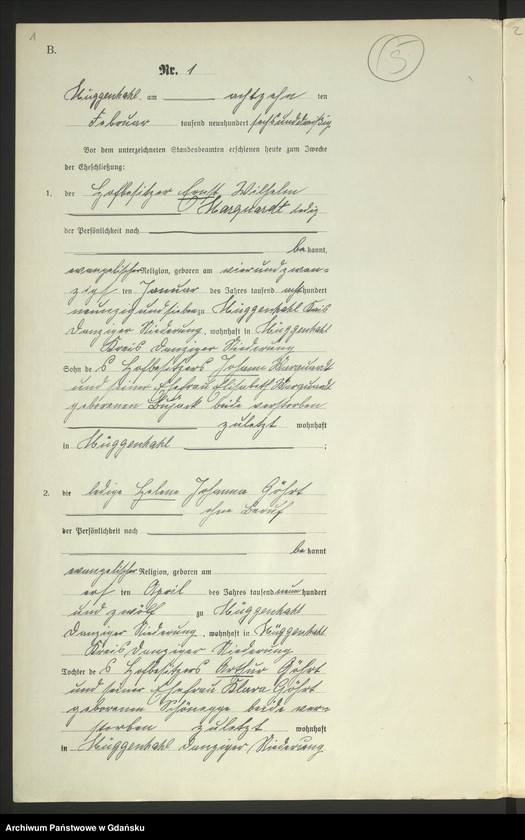 1
2
B.
5
Nr. 1
Müggenhahl am achtzehn ten
Februar tausend neunhundert sechsunddreißig
Vor dem unterzeichneten Standesbeamten erschienen heute zum Zwecke
der Eheschließung:
1. der Hofbesitzer Ernst Wilhelm
Marquardt ledig
der Persönlichkeit nach
be kannt,
evangelischer Religion, geboren am vierundzwan-
zigs ten Januar des Jahres tausend acht hundert
neunzig und sieben zu Müggenhahl Kreis
Danziger Niederung, wohnhaft in Müggenhahl
Kreis Danziger Niederung
Sohn de s Hofbesitzers Johann Marquardt
und seiner Ehefrau Elisabeth Marquardt
geborenen beide verstorben
zuletzt wohnhaft
in Müggenhahl ;
2. die ledige Helene Johanna Göhrt
ohne Beruf
der Persönlichkeit nach
be kannt
evangelischer Religion, geboren am
elf ten April des Jahres tausend neun hundert
und zwölf zu Müggenhahl
Danziger Niederung, wohnhaft in Müggenhahl
Kreis Danziger Niederung
Tochter de s Hofbesitzers Arthur Göhrt
und seiner Ehefrau Klara Göhrt
geborenen Schönegge beide ver-
storben zuletzt wohnhaft
in Müggenhahl Danziger Niederung
Archiwum Państwowe w Gdańsku